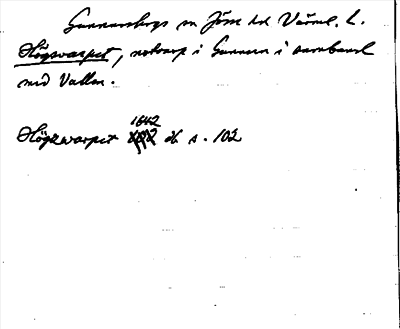 Gunnarskogs sn Jösse hd Värml. l.
Högsvarpet, notvarp i Gunnern i samband
med Vallen.
Högzwarpet 1642 db s. 102